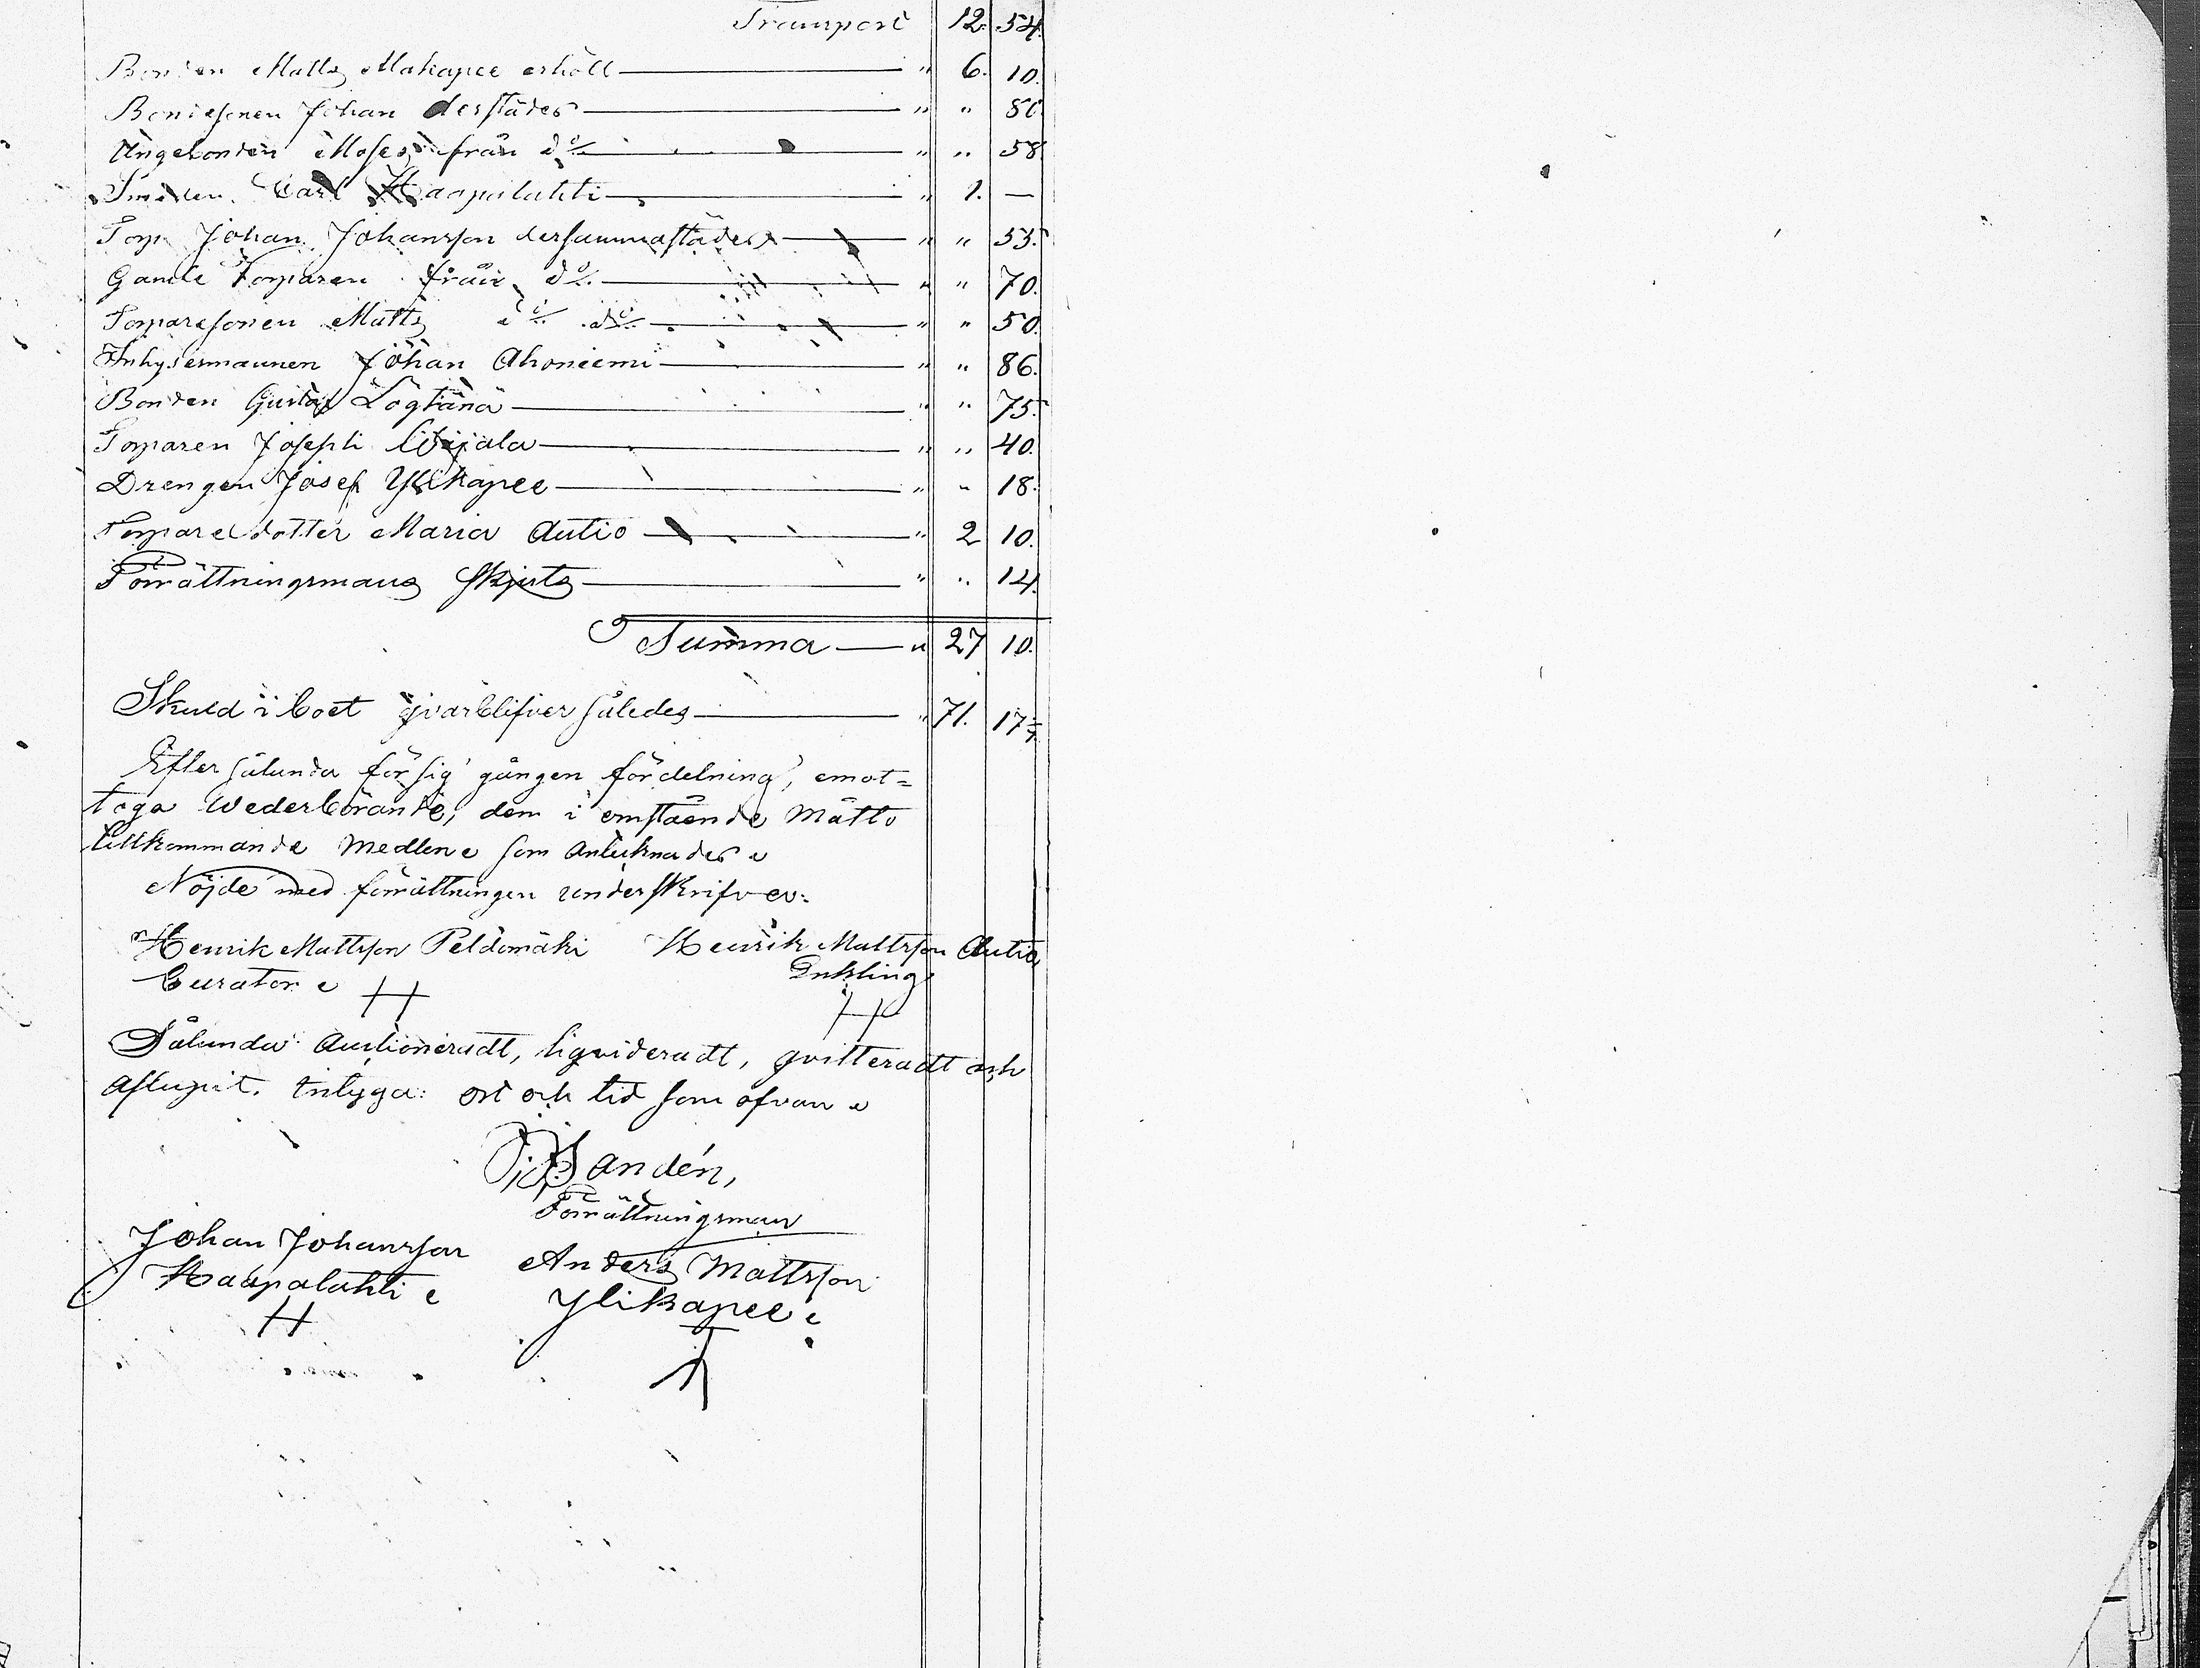 Transport 12. 54.
Bonden Matts Makapee erhöll — " 6. 10.
Bondesonen Johan derstädes — " " 80.
Ungebonden Moses från do — " " 58
Smeden Carl Haapalahti — " 1. —
Torp. Johan Johansson dersammastädes — " " 55.
Gamle Torparen från do — " " 70.
Torparesonen Matts do do — " " 50.
Inhysesmannen Johan Ahoniemi — " " 86.
Bonden Gustaf Lögtänä — " " 75.
Torparen Joseph — " " 40.
Drengen Josef Ylikapee — " " 18.
Torparedotter Maria Autio — " 2 10.
Förrättningsmans Skjuts — " " 14.
Summa — " 27 10.
Skuld i boet qvarblifver således — " 71. 17
Efter sålunda för sig gången fördelning, emot=
toga Wederbörande, dem i omstående mätto
tillkommande Medlen som antecknades
Nöjde med förrättningen underskrifver:
Henrik Mattsson Peldomäki Henrik Mattsson Autio
Curator Enkling
Sålunda Auctioneradt, liqvideradt, qvitteradt och
aflupit, intyga: ort och tid som ofvan
Sandén,
Förrättningsman
Johan Johansson Anders Mattsson
Haapalahti Ylikapee